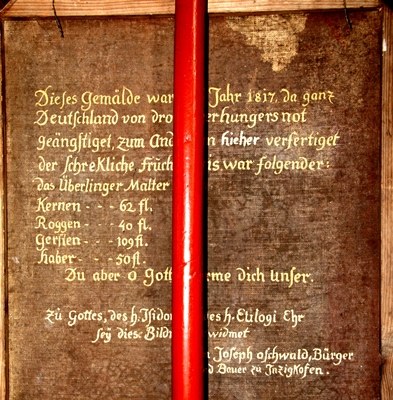 Dieses Gemälde war Jahr 1817, da ganz
Deutschland von dro erhungers not
geängstiget, zum And n hieher verfertiget
der schreKliche Früch is war folgender:
das Überlinger Malter
Kernen - - - 62 fl.
Roggen - - - 40 fl.
Gersten - - - 109 fl.
haber - - - 50 fl.
Du aber o Gott rme dich unser.
Zu Gottes, des h. Isido es h. Eulogi Ehr
sey dies Bildn widmet
Joseph oschwald, Bürger
d Bauer zu Inzigkofen.